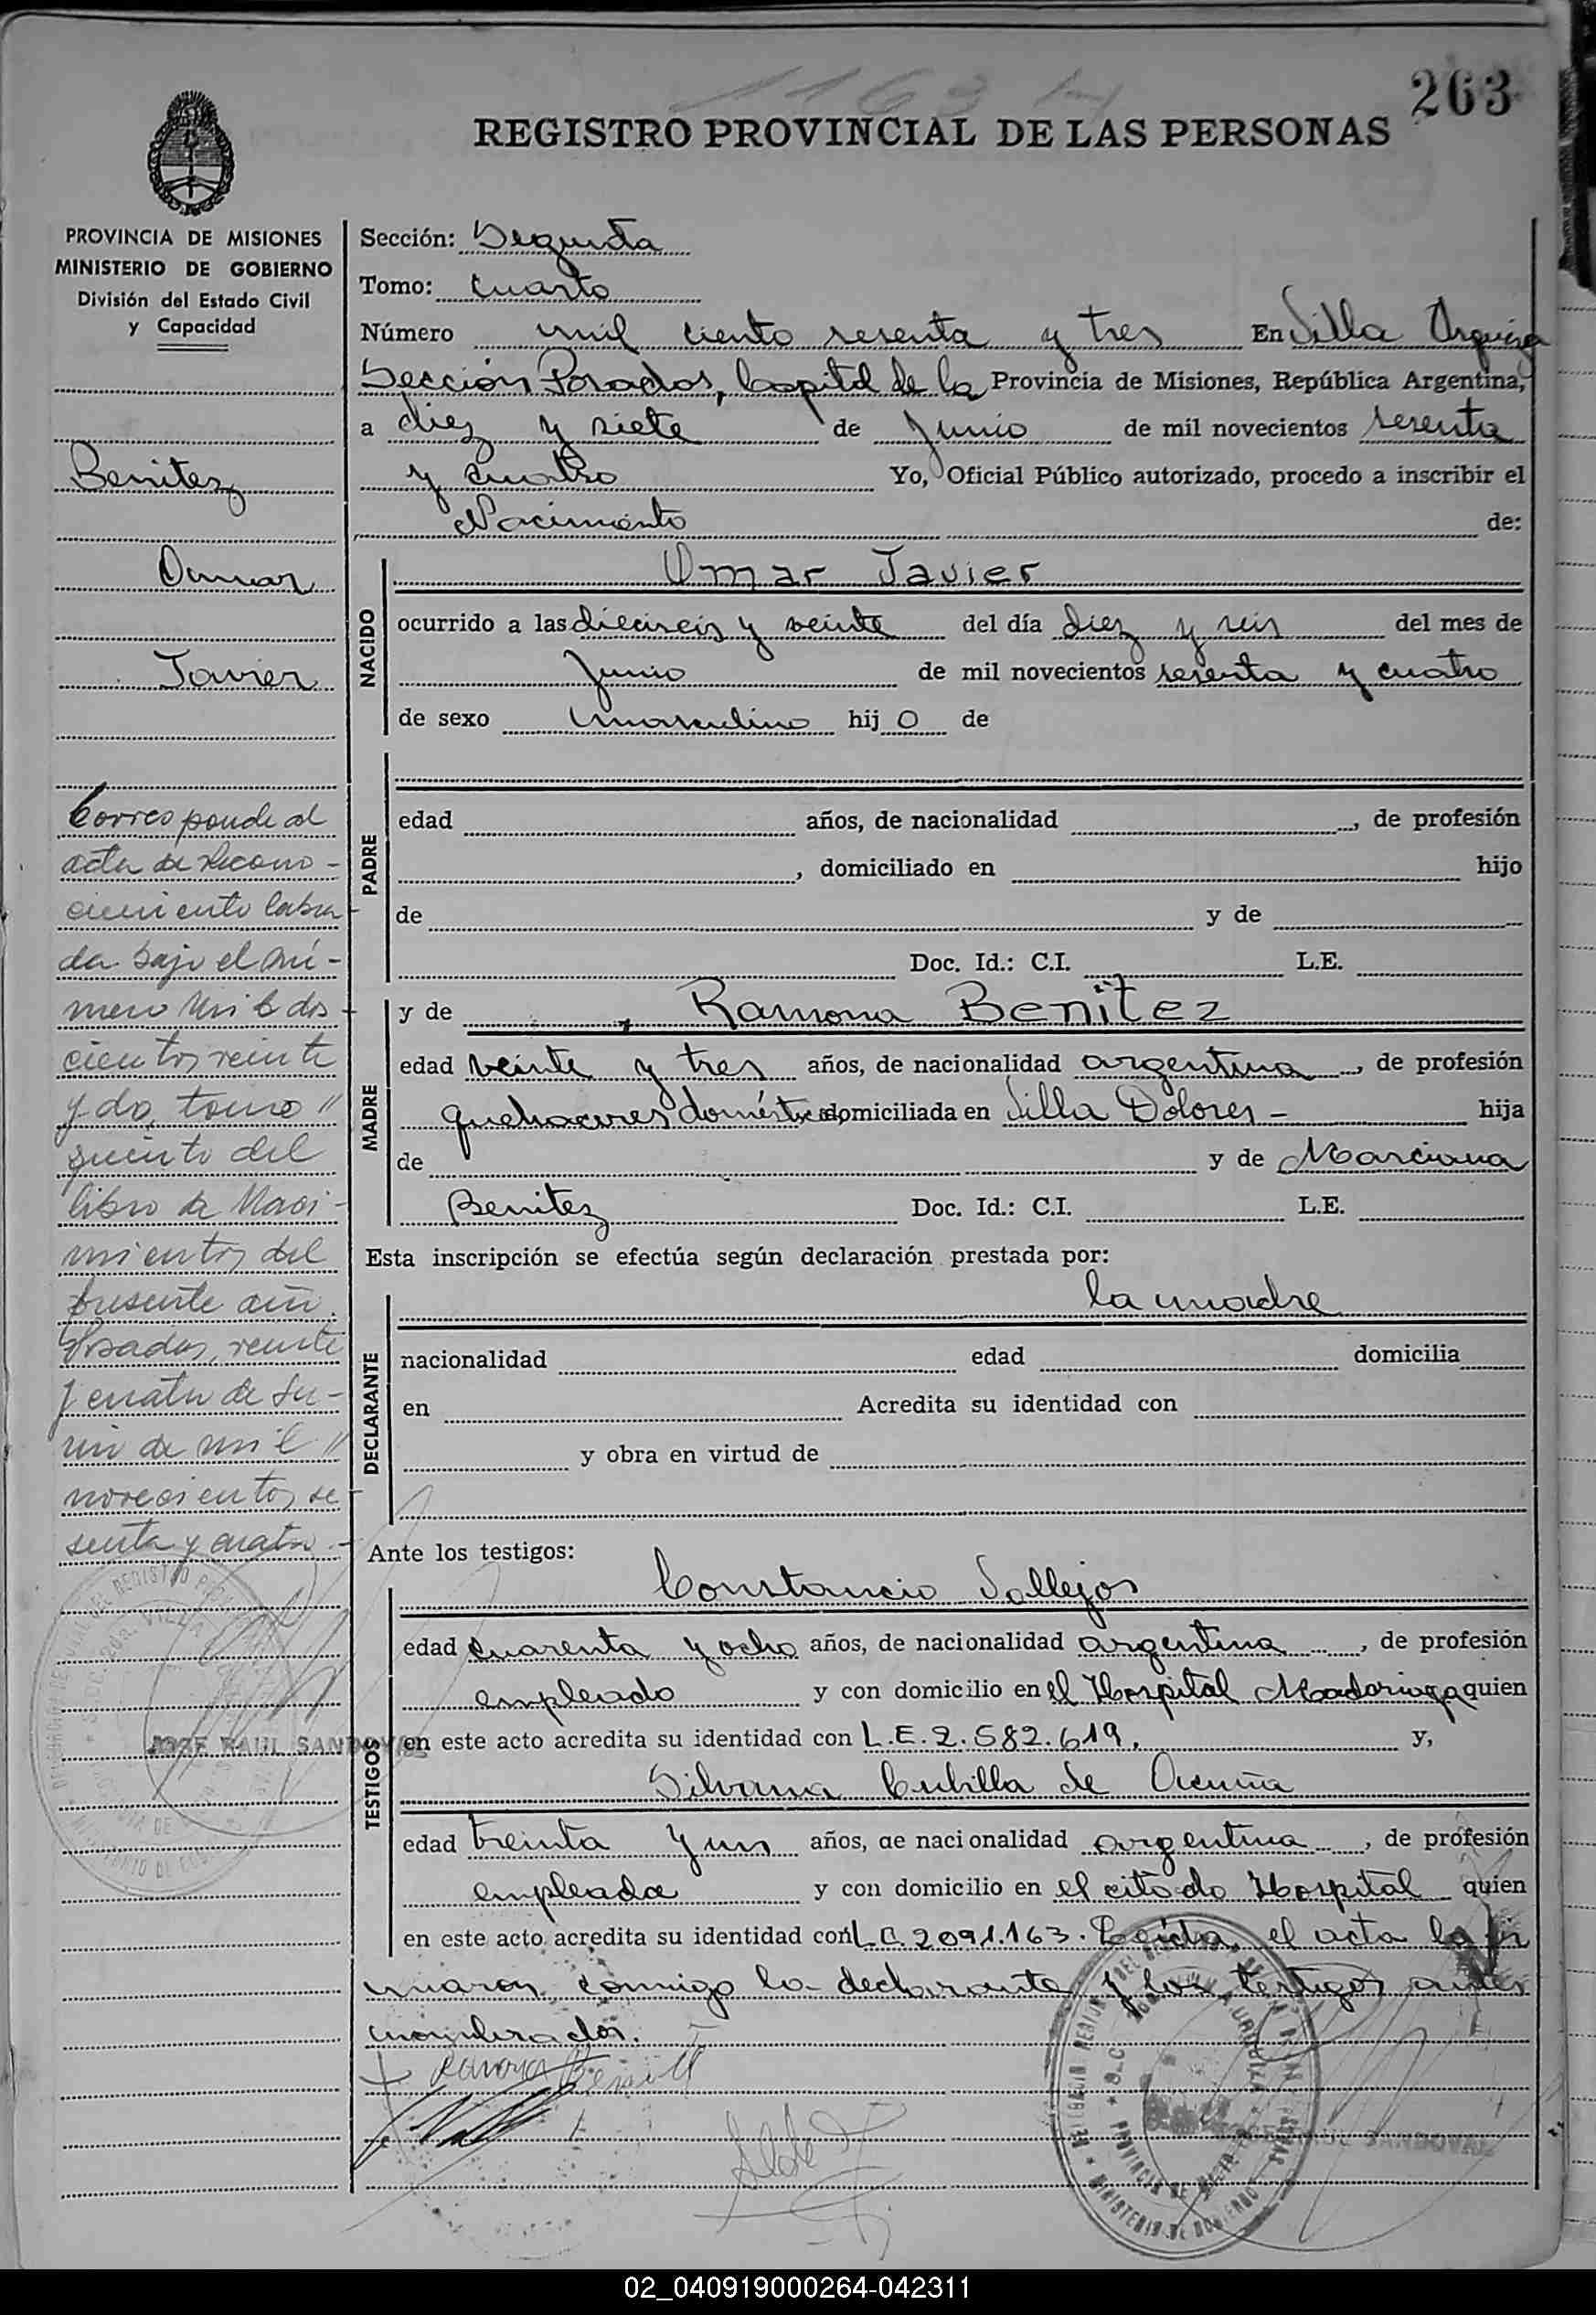 263
REGISTRO PROVINCIAL DE LAS PERSONAS
PROVINCIA DE MISIONES
MINISTERIO DE GOBIERNO
División del Estado Civil
y Capacidad
Benitez
Omar
Javier
Corresponde al
acta de recono-
cimiento labra-
da bajo el nú-
mero mil dos-
cientos veinte
y dos, tomo //
quinto del
libro de Naci-
mientos del
presente año.
Posadas, veinte
y cuatro de Ju-
nio de mil //
novecientos se-
senta y cuatro.-
JOSE RAUL SANDOVAL
Sección: Segunda
Tomo: Cuarto
Número mil ciento sesenta y tres En Villa Urquiza
Sección Posadas, Capital de la Provincia de Misiones, República Argentina,
a diez y siete de Junio de mil novecientos sesenta
y cuatro Yo, Oficial Público autorizado, procedo a inscribir el
Nacimiento de:
NACIDO
Omar Javier
ocurrido a las dieciseis y veinte del día diez y seis del mes de
Junio de mil novecientos sesenta y cuatro
de sexo masculino hijo de
PADRE
edad años, de nacionalidad , de profesión
, domiciliado en hijo
de y de
Doc. Id.: C.I. L.E.
MADRE
y de Ramona Benitez
edad veinte y tres años, de nacionalidad argentina, de profesión
quehaceres domésticos domiciliada en Villa Dolores - hija
de y de Marciana
Benitez Doc. Id.: C.I. L.E.
Esta inscripción se efectúa según declaración prestada por:
DECLARANTE
la madre
nacionalidad edad domicilia
en Acredita su identidad con
y obra en virtud de
Ante los testigos:
TESTIGOS
Constancio Vallejos
edad cuarenta y ocho años, de nacionalidad argentina, de profesión
empleado y con domicilio en el Hospital Madariaga quien
en este acto acredita su identidad con L.E.2.582.619, y,
Silvana Cubilla de Acuña
edad treinta y un años, de nacionalidad argentina, de profesión
empleada y con domicilio en el citado Hospital quien
en este acto acredita su identidad con L.C.2091.163. Leída el acta la fir
maron conmigo la declarante y los testigos antes
nombrados.
Ramona Benitez
JOSE RAUL SANDOVAL
02_040919000264-042311